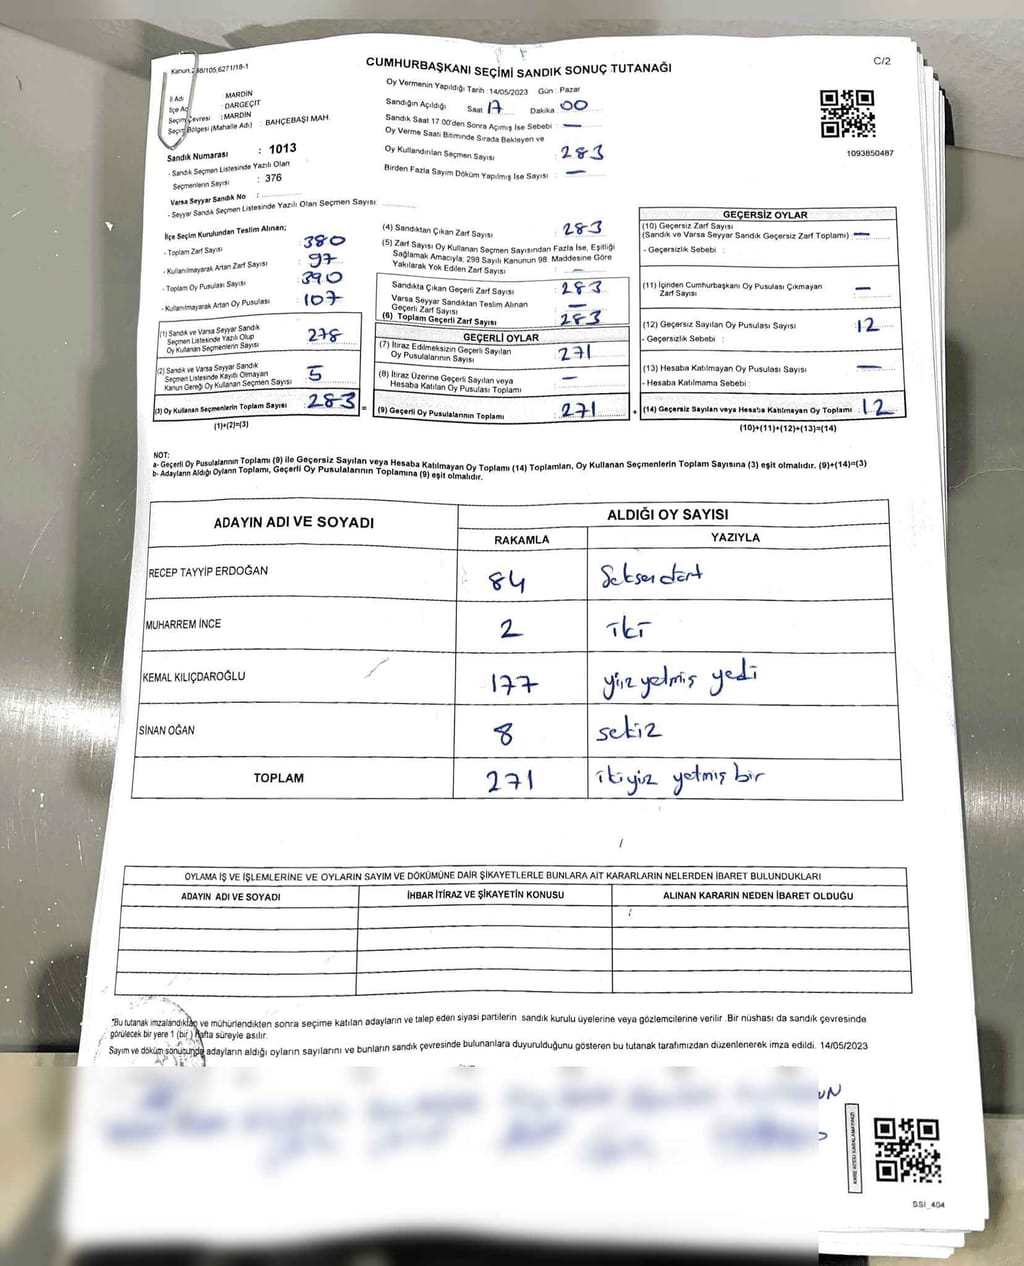 Kanun:298/105,6271/18-1
CUMHURBAŞKANI SEÇİMİ SANDIK SONUÇ TUTANAĞI
C/2
İl Adı : MARDİN
İlçe Adı : DARGEÇİT
Seçim Çevresi : MARDİN
Seçim Bölgesi (Mahalle Adı) : BAHÇEBAŞI MAH.
Sandık Numarası : 1013
- Sandık Seçmen Listesinde Yazılı Olan
Seçmenlerin Sayısı : 376
Varsa Seyyar Sandık No :
- Seyyar Sandık Seçmen Listesinde Yazılı Olan Seçmen Sayısı:
Oy Vermenin Yapıldığı Tarih : 14/05/2023 Gün : Pazar
Sandığın Açıldığı Saat 17 Dakika : 00
Sandık Saat 17.00'den Sonra Açımış İse Sebebi : —
Oy Verme Saati Bitiminde Sırada Bekleyen ve
Oy Kullandırılan Seçmen Sayısı : 283
Birden Fazla Sayım Döküm Yapılmış İse Sayısı : —
1093850487
İlçe Seçim Kurulundan Teslim Alınan;
- Toplam Zarf Sayısı : 380
- Kullanılmayarak Artan Zarf Sayısı : 97
- Toplam Oy Pusulası Sayısı : 390
- Kullanılmayarak Artan Oy Pusulası : 107
(1) Sandık ve Varsa Seyyar Sandık
Seçmen Listesinde Yazılı Olup
Oy Kullanan Seçmenlerin Sayısı : 278
(2) Sandık ve Varsa Seyyar Sandık
Seçmen Listesinde Kayıtlı Olmayan
Kanun Gereği Oy Kullanan Seçmen Sayısı : 5
(3) Oy Kullanan Seçmenlerin Toplam Sayısı : 283 =
(1)+(2)=(3)
(4) Sandıktan Çıkan Zarf Sayısı : 283
(5) Zarf Sayısı Oy Kullanan Seçmen Sayısından Fazla İse, Eşitliği
Sağlamak Amacıyla; 298 Sayılı Kanunun 98. Maddesine Göre
Yakılarak Yok Edilen Zarf Sayısı : —
Sandıkta Çıkan Geçerli Zarf Sayısı : 283
Varsa Seyyar Sandıktan Teslim Alınan
Geçerli Zarf Sayısı : —
(6) Toplam Geçerli Zarf Sayısı : 283
GEÇERLİ OYLAR
(7) İtiraz Edilmeksizin Geçerli Sayılan
Oy Pusulalarının Sayısı : 271
(8) İtiraz Üzerine Geçerli Sayılan veya
Hesaba Katılan Oy Pusulası Toplamı : —
(9) Geçerli Oy Pusulalarının Toplamı : 271 +
GEÇERSİZ OYLAR
(10) Geçersiz Zarf Sayısı
(Sandık ve Varsa Seyyar Sandık Geçersiz Zarf Toplamı) : —
- Geçersizlik Sebebi :
(11) İçinden Cumhurbaşkanı Oy Pusulası Çıkmayan
Zarf Sayısı : —
(12) Geçersiz Sayılan Oy Pusulası Sayısı : 12
- Geçersizlik Sebebi :
(13) Hesaba Katılmayan Oy Pusulası Sayısı : —
- Hesaba Katılmama Sebebi :
(14) Geçersiz Sayılan veya Hesaba Katılmayan Oy Toplamı : 12
(10)+(11)+(12)+(13)=(14)
NOT:
a- Geçerli Oy Pusulalarının Toplamı (9) ile Geçersiz Sayılan veya Hesaba Katılmayan Oy Toplamı (14) Toplamları, Oy Kullanan Seçmenlerin Toplam Sayısına (3) eşit olmalıdır. (9)+(14)=(3)
b- Adayların Aldığı Oyların Toplamı, Geçerli Oy Pusulalarının Toplamına (9) eşit olmalıdır.
ADAYIN ADI VE SOYADI
ALDIĞI OY SAYISI
RAKAMLA YAZIYLA
RECEP TAYYİP ERDOĞAN 84 Seksen dört
MUHARREM İNCE 2 iki
KEMAL KILIÇDAROĞLU 177 yüz yetmiş yedi
SİNAN OĞAN 8 sekiz
TOPLAM 271 ikiyüz yetmiş bir
OYLAMA İŞ VE İŞLEMLERİNE VE OYLARIN SAYIM VE DÖKÜMÜNE DAİR ŞİKAYETLERLE BUNLARA AİT KARARLARIN NELERDEN İBARET BULUNDUKLARI
ADAYIN ADI VE SOYADI İHBAR İTİRAZ VE ŞİKAYETİN KONUSU ALINAN KARARIN NEDEN İBARET OLDUĞU
*Bu tutanak imzalandıktan ve mühürlendikten sonra seçime katılan adayların ve talep eden siyasi partilerin sandık kurulu üyelerine veya gözlemcilerine verilir. Bir nüshası da sandık çevresinde
görülecek bir yere 1 (bir) hafta süreyle asılır.
Sayım ve döküm sonucunda adayların aldığı oyların sayılarını ve bunların sandık çevresinde bulunanlara duyurulduğunu gösteren bu tutanak tarafımızdan düzenlenerek imza edildi. 14/05/2023
SSI_404